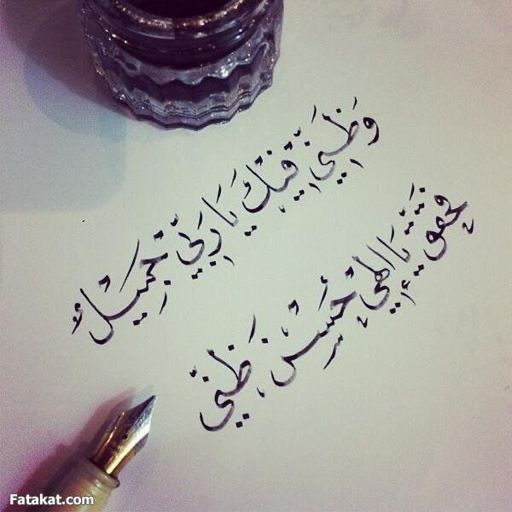 وَظَنِّي فِيكَ يَا رَبِّي جَمِيلٌ
فَحَقِّق يَا إِلٰهِي حُسْنَ ظَنِّي
Fatakat.com